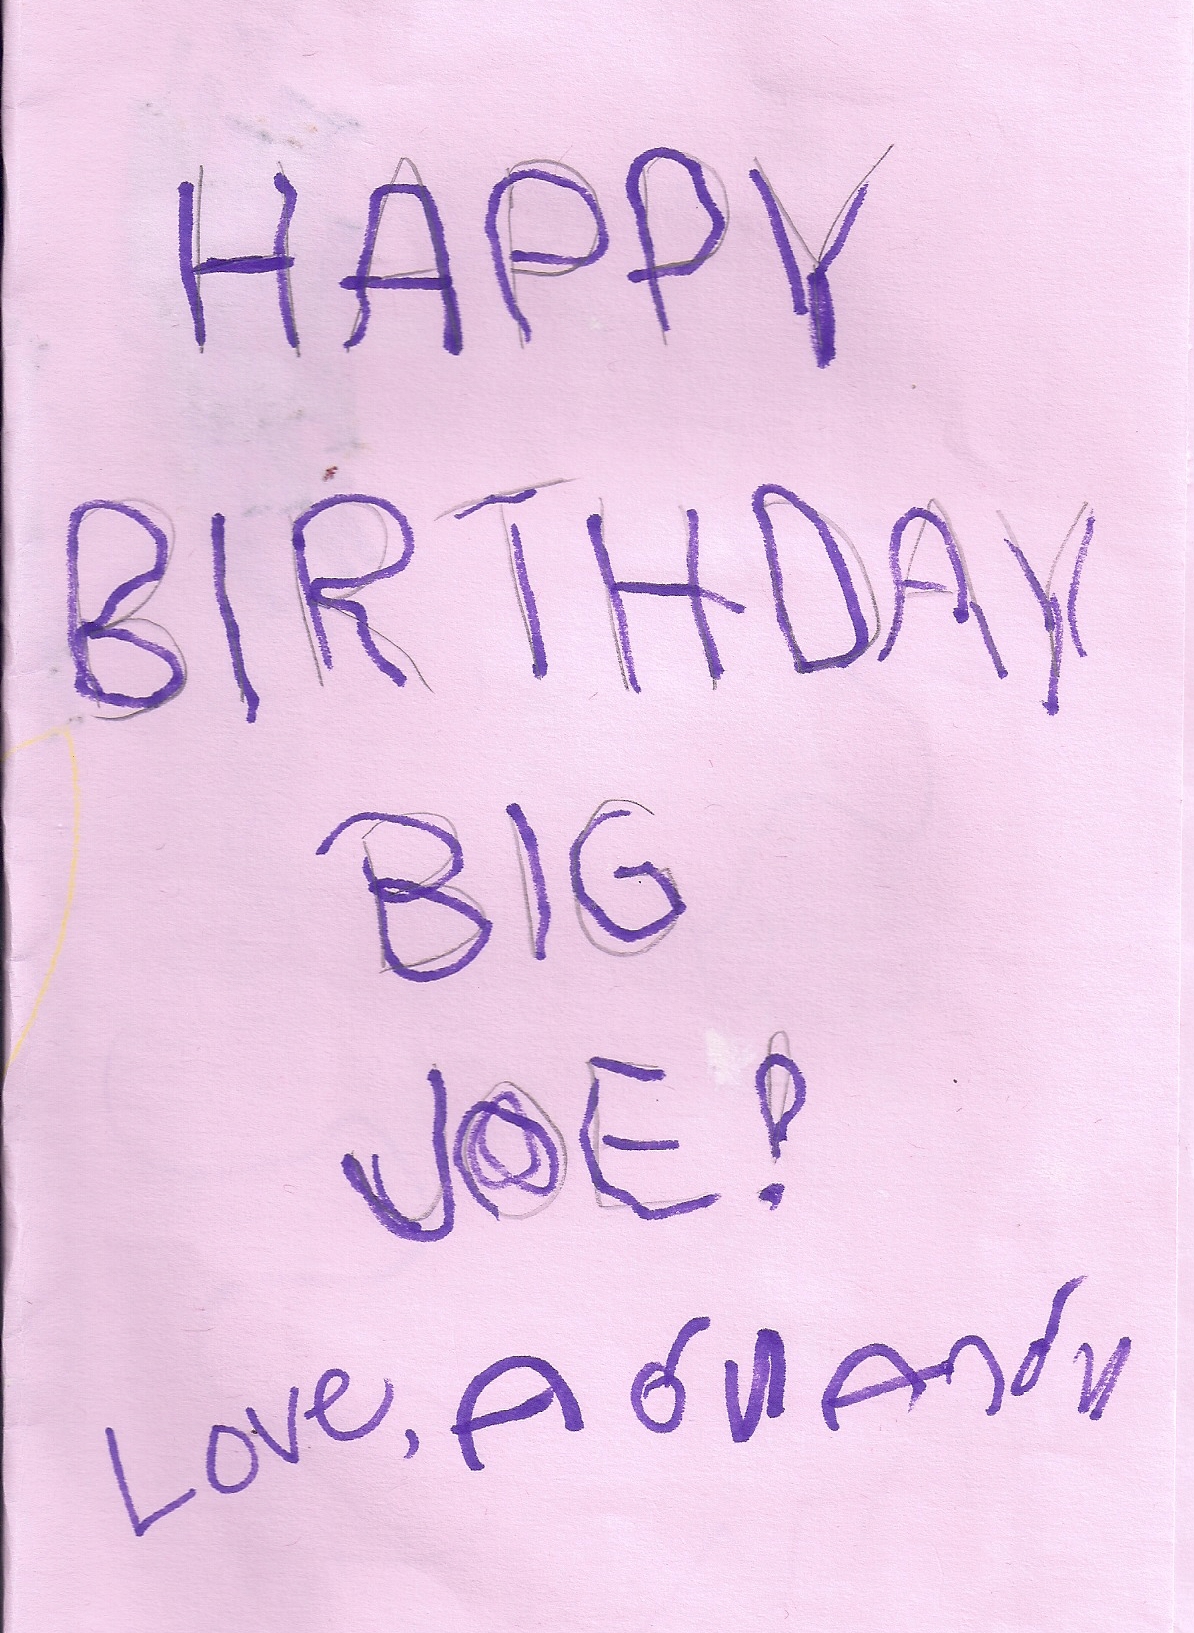 HAPPY
BIRTHDAY
BIG
JOE!
Love,